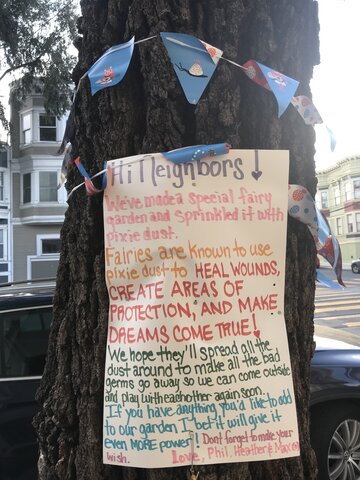 Hi Neighbors!
We've made a special fairy
garden and sprinkled it with
pixie dust.
Fairies are known to use
pixie dust to HEAL WOUNDS,
CREATE AREAS OF
PROTECTION, AND MAKE
DREAMS COME TRUE!
We hope they'll spread all the
dust around to make all the bad
germs go away so we can come outside
and play with eachother again soon.
If you have anything you'd like to add
to our garden I bet it will give it
even MORE power! Don't forget to make your
wish. Love, Phil, Heather & Max